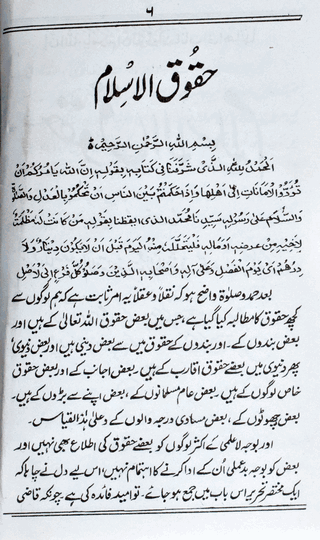 ۶
حقوق الاسلام
بِسْمِ اللهِ الرَّحْمٰنِ الرَّحِيْمِ
اَلْحَمْدُ لِلّٰهِ الَّذِيْ شَرَّفَنَا فِيْ كِتَابِهٖ بِقَوْلِهٖ اِنَّ اللهَ يَاْمُرُكُمْ اَنْ
تُؤَدُّوا الْاَمَانَاتِ اِلٰى اَهْلِهَا وَاِذَا حَكَمْتُمْ بَيْنَ النَّاسِ اَنْ تَحْكُمُوْا بِالْعَدْلِ
وَالسَّلَامُ عَلٰى رَسُوْلِهٖ سَيِّدِنَا مُحَمَّدٍ الَّذِيْ اَيْقَظَنَا بِقَوْلِهٖ مَنْ كَانَتْ لَهٗ مَظْلَمَةٌ
لِاَخِيْهِ مِنْ عِرْضِهٖ اَوْ مَالِهٖ فَلْيَتَحَلَّلْ مِنْهُ الْيَوْمَ قَبْلَ اَنْ لَّا يَكُوْنَ دِيْنَارٌ وَّلَا
دِرْهَمٌ اِلٰى يَوْمِ الْفَصْلِ وَعَلٰى اٰلِهٖ وَاَصْحَابِهِ الَّذِيْنَ وَصَلُوْا كُلَّ فَرْعٍ اِلَى الْاَصْلِ
بعد حمد و صلوٰۃ واضح ہو کہ نقلاً و عقلاً یہ امر ثابت ہے کہ ہم لوگوں سے
کچھ حقوق کا مطالبہ کیا گیا ہے، جس میں بعض حقوق اللہ تعالیٰ کے ہیں اور
بعض بندوں کے۔ اور بندوں کے حقوق میں سے بعض دینی ہیں اور بعض دنیوی،
پھر دنیوی میں بعضے حقوق اقارب کے ہیں۔ بعض اجانب کے اور بعض حقوق
خاص لوگوں کے ہیں۔ بعض عام مسلمانوں کے، بعض اپنے سے بڑوں کے ہیں۔
بعض چھوٹوں کے، بعض مساوی درجہ والوں کے وعلیٰ ہذا القیاس۔
اور بوجہ لاعلمی کے اکثر لوگوں کو بعضے حقوق کی اطلاع بھی نہیں اور
بعض کو بوجہ بدعملی اُن کے ادا کرنے کا اہتمام نہیں، اس لیے دل نے چاہا کہ
ایک مختصر تحریر اس باب میں جمع ہو جائے۔ تو امید فائدہ کی ہے چونکہ قاضی